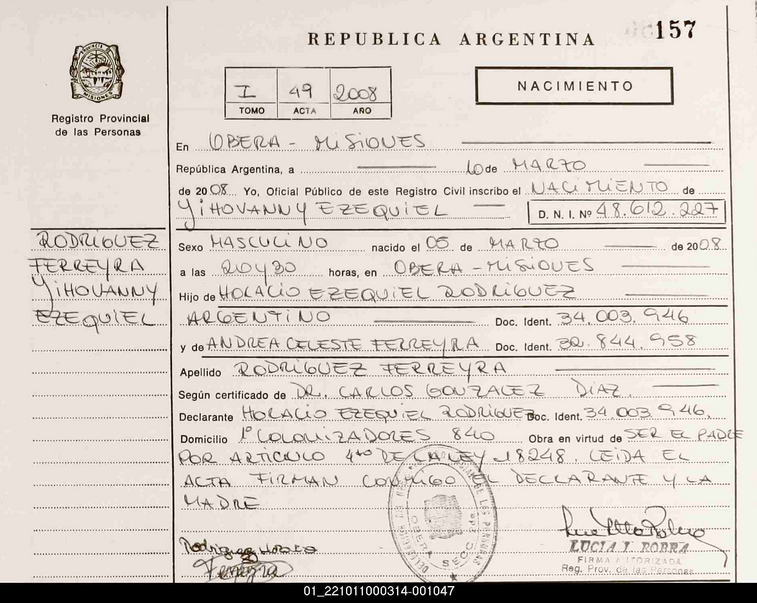 157
REPUBLICA ARGENTINA
I 49 2008
TOMO ACTA AÑO
NACIMIENTO
Registro Provincial
de las Personas
En OBERA - MISIONES
República Argentina, a 10 de MARZO
de 2008. Yo, Oficial Público de este Registro Civil inscribo el NACIMIENTO de
YIHOVANNY EZEQUIEL D. N. I. Nº 48.612.227
RODRIGUEZ
FERREYRA
YIHOVANNY
EZEQUIEL
Sexo MASCULINO nacido el 05 de MARZO de 2008.
a las 20 y 30 horas, en OBERA - MISIONES
Hijo de HORACIO EZEQUIEL RODRIGUEZ
ARGENTINO Doc. Ident. 34.003.946
y de ANDREA CELESTE FERREYRA Doc. Ident. 32.844.958
Apellido RODRIGUEZ FERREYRA
Según certificado de DR. CARLOS GONZALEZ DIAZ.
Declarante HORACIO EZEQUIEL RODRIGUEZ Doc. Ident. 34.003.946.
Domicilio 1º COLONIZADORES 840 Obra en virtud de SER EL PADRE
POR ARTICULO 4to DE LA LEY 18248. LEIDA EL
ACTA FIRMAN CONMIGO EL DECLARANTE Y LA
MADRE
Rodriguez Horacio
Ferreyra
LUCIA I. ROBRA
FIRMA AUTORIZADA
Reg. Prov. de las Personas
01_221011000314-001047